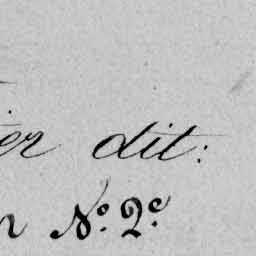 er dit:
n N.º 2.º